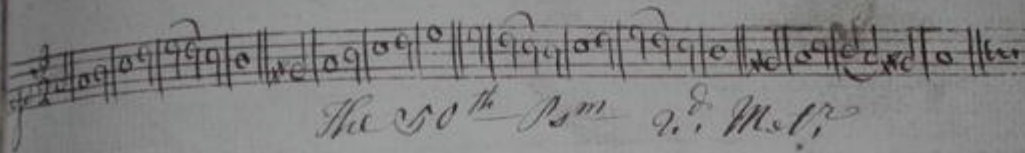 The 50th Psm 2.d Met.r